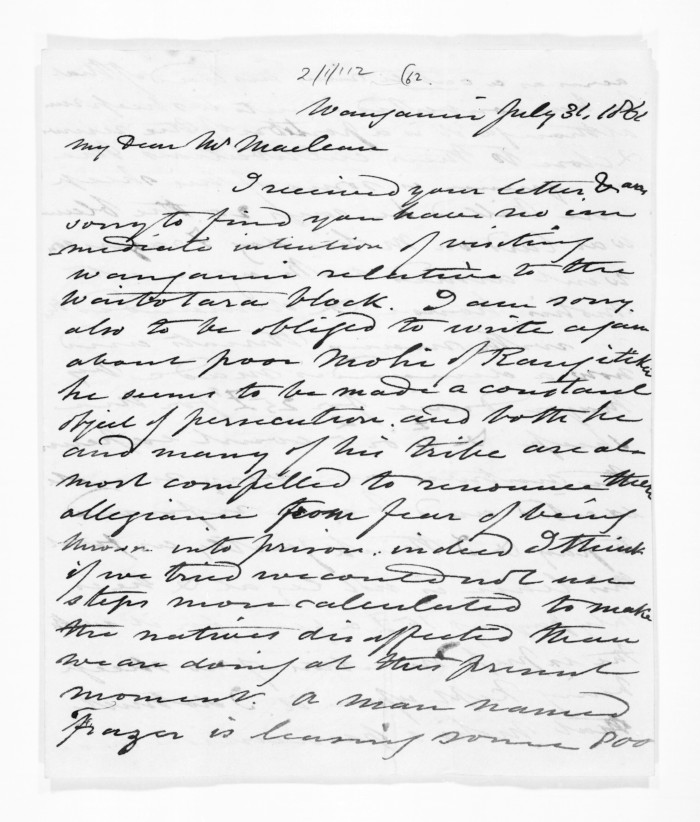 2/1/112 62.
Wanganui July 31. 186
My Dear Mr Maclean
I received your letter & am
sorry to find you have no im
mediate intention of visiting
Wanganui relative to the
Waitotara block. I am sorry
also to be obliged to write again
about poor Mohi of Rangitikei
he seems to be made a constant
object of persecution. and both he
and many of his tribe are al-
most compelled to renounce their
allegiance from fear of being
thrown into prison. indeed I think
if we tried we could not use
steps more calculated to make
the natives disaffected than
we are doing at this present
moment. a man named
Frazer is leasing some 800